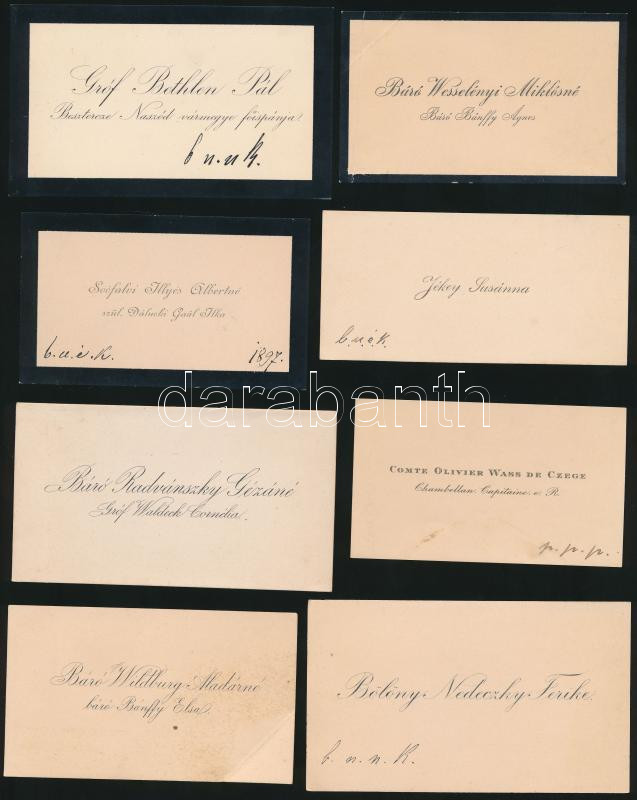 Gróf Bethlen Pál
Besztercze Naszód vármegye főispánja.
b n. n k.
Báró Wesselényi Miklósné
Báró Bánffy Ágnes
Soófalvi Illyés Albertné
szül. Dálnoki Gaál Ilka
b. u. é. k. 1897.
Jékey Zsuzsánna
b. u. é k.
darabanth
Báró Radvánszky Gézáné
Gróf Waldeck Cornélia.
COMTE OLIVIER WASS DE CZEGE
Chambellan, Capitaine, e. R.
p. p. p.
Báró Wildburg Aladárné
báró Bánffy Elsa.
Bölöny-Nedeczky Ferike.
b. n. n. k.